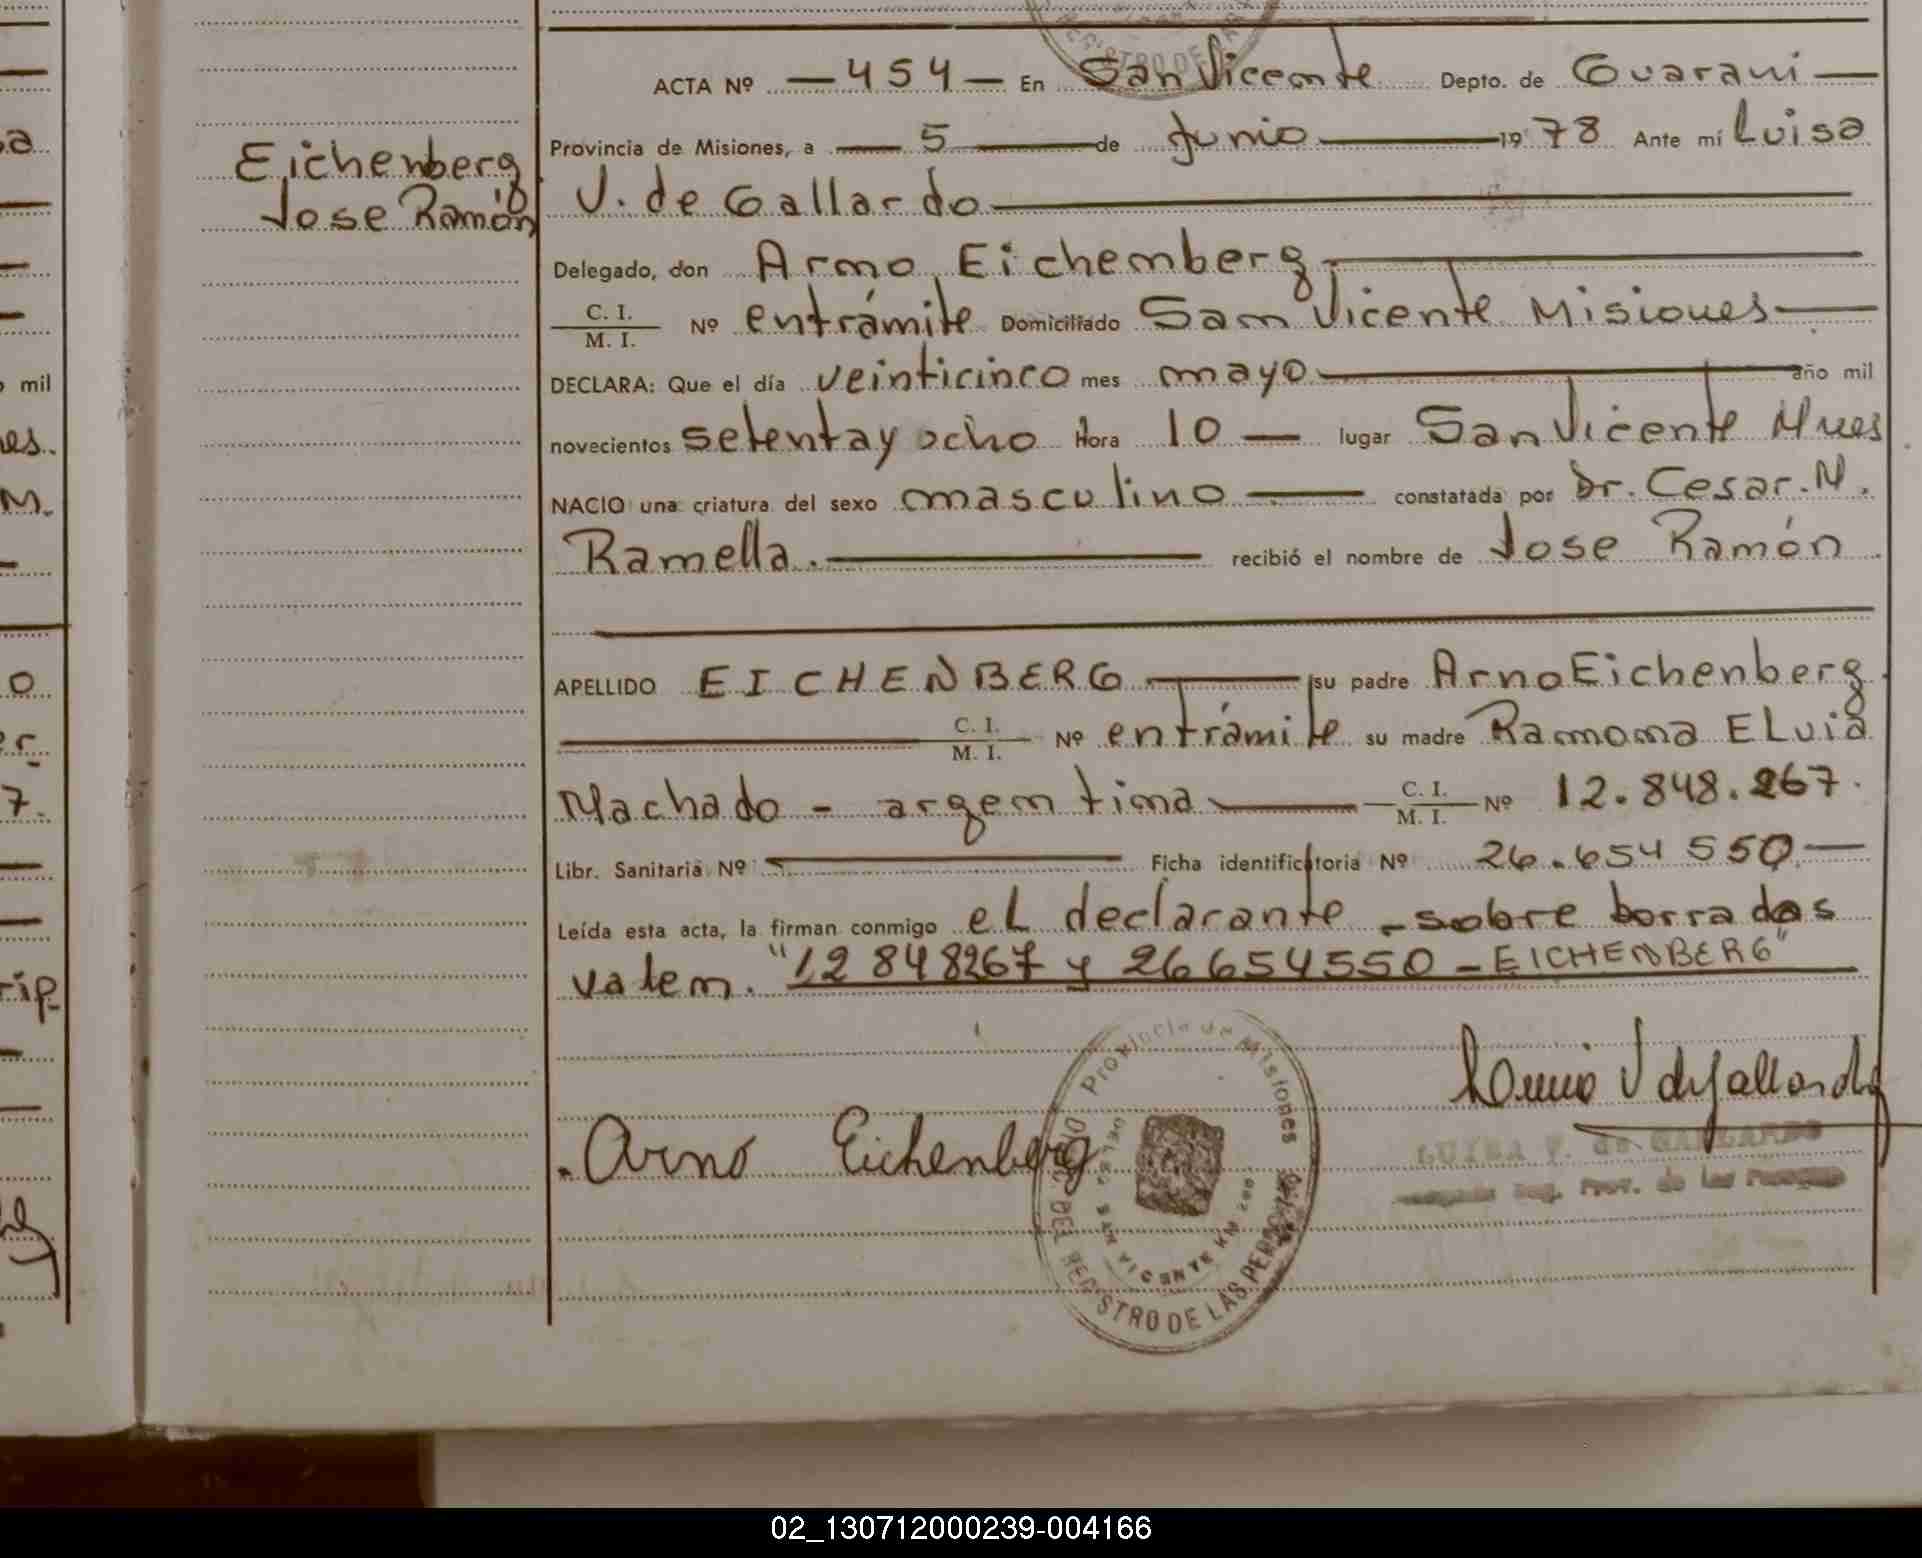 ACTA Nº —454— En San Vicente Depto. de Guarani —
Eichenberg
Jose Ramón
Provincia de Misiones, a — 5 — de Junio — 1978 Ante mí Luisa
V. de Gallardo —
Delegado, don Arno Eichemberg —
C. I.
M. I.
Nº entrámite Domiciliado San Vicente Misiones —
DECLARA: Que el día veinticinco mes mayo — año mil
novecientos setentay ocho Hora 10 — lugar San Vicente Mnes
NACIO una criatura del sexo masculino — constatada por Dr. Cesar. N.
Ramella. — recibió el nombre de Jose Ramón
APELLIDO EICHENBERG — su padre Arno Eichenberg
— C. I.
M. I.
Nº entrámite su madre Ramona ELvia
Machado - argentina — C. I.
M. I.
Nº 12.848.267.
Libr. Sanitaria Nº — Ficha identificatoria Nº 26.654 550 —
Leída esta acta, la firman conmigo eL declarante - sobre borrados
valen. "12 848267 y 26654550 - EICHENBERG"
Arno Eichenberg
Luisa V de Gallardo
LUISA V. de GALLARDO
Provincia de Misiones
DEL REGISTRO DE LAS PERSONAS
DELEG. SAN VICENTE KM
REGISTRO DE
02_130712000239-004166
mil
7.